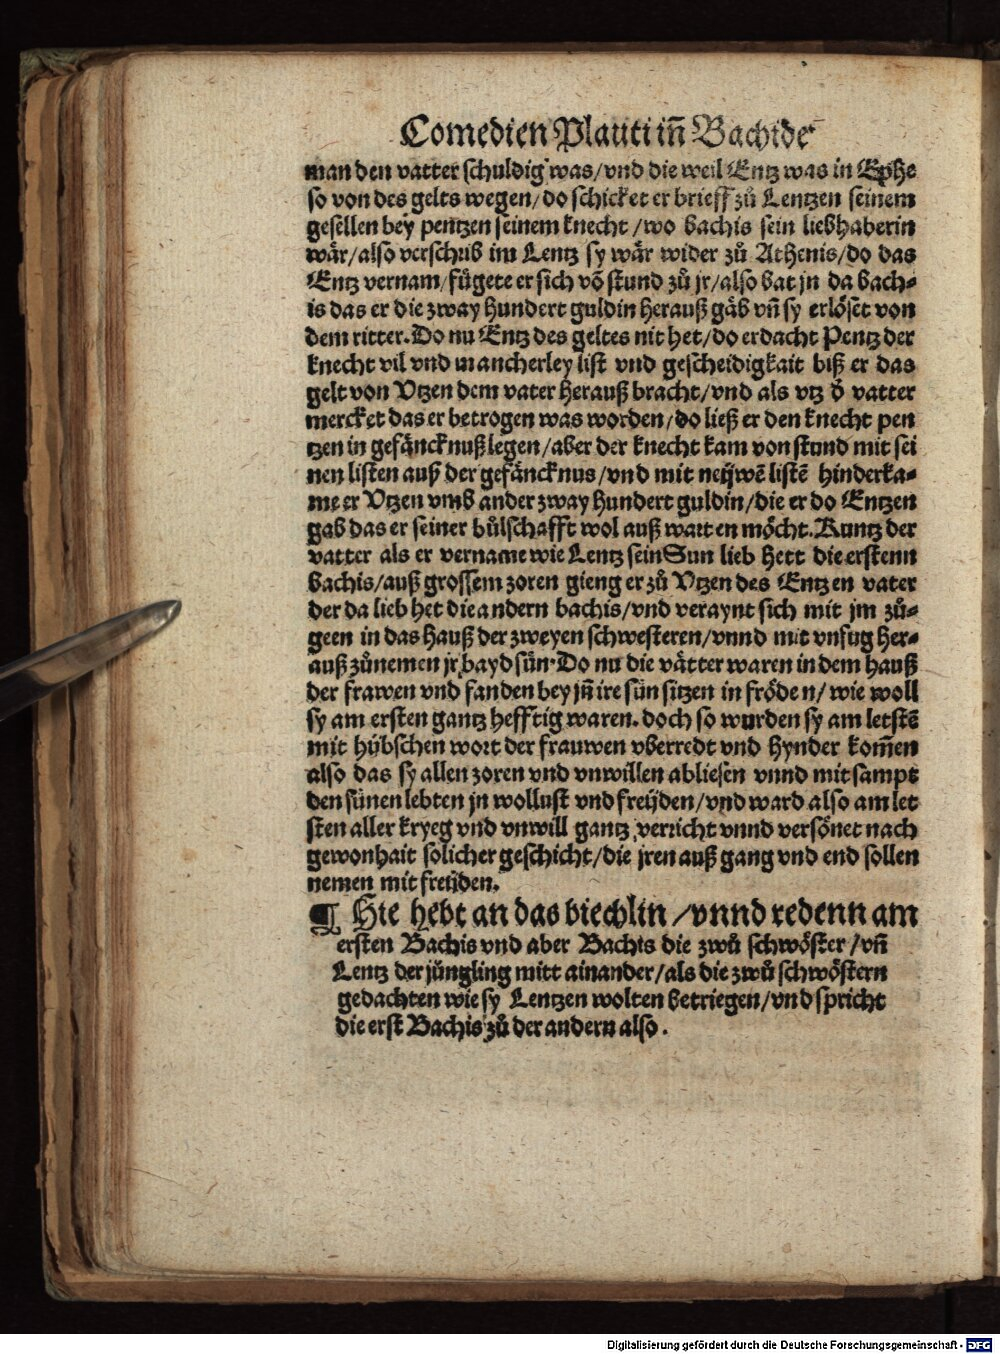 Comedien Plauti in̄ Bachide
man den vatter schuldig was/vnd die weil Entz was in Ephe
so von des gelts wegen/do schicket er brieff zů Lentzen seinem
gesellen bey pentzen seinem knecht/wo bachis sein liebhaberin
wår/also verschrib im Lentz sy wår wider zů Athenis/do das
Entz vernam/fůgete er sich vō stund zů jr/also bat jn da bach⸗
is das er die zway hundert guldin herauß gåb vn̄ sy erlöset von
dem ritter. Do nu Entz des geltes nit het/do erdacht Pentz der
knecht vil vnd mancherley list vnd gescheidigkait biß er das
gelt von Vtzen dem vater herauß bracht/vnd als vtz d̄ vatter
mercket das er betrogen was worden/do ließ er den knecht pen
tzen in gefåncknuß legen/aber der knecht kam von stund mit sei
nen listen auß der gefåncknus/vnd mit neijwē listē hinderka⸗
me er Vtzen vmb ander zway hundert guldin/die er do Entzen
gab das er seiner bůlschafft wol auß warten möcht. Kuntz der
vatter als er vername wie Lentz sein Sun lieb hett die erstenn
bachis/auß grossem zoren gieng er zů Vtzen des Entzen vater
der da lieb het die andern bachis/vnd veraynt sich mit jm zů⸗
geen in das hauß der zweyen schwesteren/vnnd mit vnfug her⸗
auß zůnemen jr bayd sün. Do nu die våtter waren in dem hauß
der frawen vnd fanden bey jn̄ ire sün sitzen in fröden/wie woll
sy am ersten gantz hefftig waren. doch so wurden sy am letstē
mit hübschen wort der frauwen vberredt vnd hynder kom̄en
also das sy allen zoren vnd vnwillen abliesen vnnd mit sampt
den sünen lebten jn wollust vnd freijden/vnd ward also am let
sten aller kryeg vnd vnwill gantz verricht vnnd versönet nach
gewonhait solicher geschicht/die jren auß gang vnd end sollen
nemen mit freijden.
¶ Hie hebt an das biechlin/vnnd redenn am
ersten Bachis vnd aber Bachis die zwů schwöster/vn̄
Lentz der jüngling mitt ainander/als die zwů schwöstern
gedachten wie sy Lentzen wolten betriegen/vnd spricht
die erst Bachis zů der andern also.
Digitalisierung gefördert durch die Deutsche Forschungsgemeinschaft - DFG